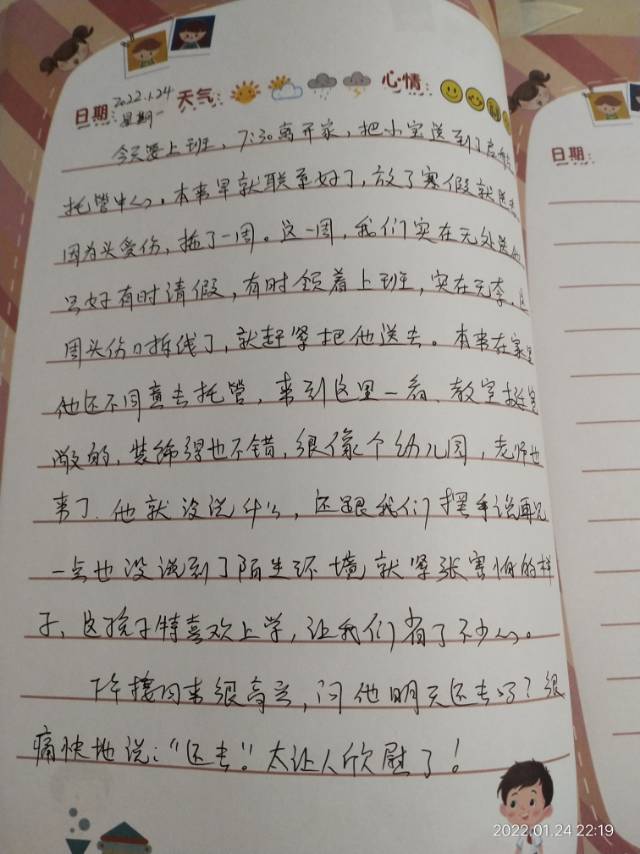 日期: 2022.1.24 星期一 天气: 心情:
今天要上班，7:30离开家，把小宝送到了
托管中心。本来早就联系好了，放了寒假就
因为头受伤，拖了一周。这一周，我们实在无处
只好有时请假，有时领着上班，实在无奈，
周头伤口拆线了，就赶紧把他送去。本来在家里
他还不同意去托管，来到这里一看，教室挺宽
敞的，装饰得也不错，很像个幼儿园，老师也
来了，他就没说什么，还跟我们摆手说再见
一点也没说到了陌生环境就紧张害怕的样
子，这孩子特喜欢上学，让我们省了不少心。
下午接回来很高兴，问他明天还去吗？很
痛快地说：“还去”！太让人欣慰了！
日期:
2022.01.24 22:19